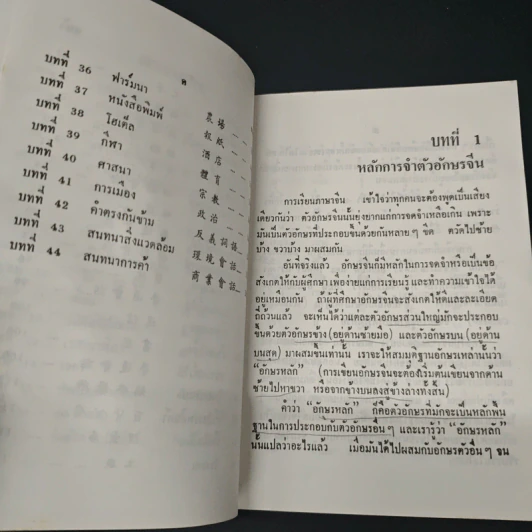 ค
บทที่ 36 ฟาร์มนา 農場
บทที่ 37 หนังสือพิมพ์ 報紙
บทที่ 38 โฮเต็ล 酒店
บทที่ 39 กีฬา 體育
บทที่ 40 ศาสนา 宗教
บทที่ 41 การเมือง 政治
บทที่ 42 คำตรงกันข้าม 反義詞語
บทที่ 43 สนทนาสิ่งแวดล้อม 環境會話
บทที่ 44 สนทนาการค้า 商業會話
บทที่ 1
หลักการจำตัวอักษรจีน
การเรียนภาษาจีน เข้าใจว่าทุกคนจะต้องพูดเป็นเสียง
เดียวกันว่า ตัวอักษรจีนนั้นยุ่งยากแก่การจดจำเหลือเกิน เพราะ
มันเป็นตัวอักษรที่ประกอบขึ้นด้วยเส้นหลายๆ ขีด ตวัดไปซ้าย
บ้าง ขวาบ้าง มาผสมกัน
อันที่จริงแล้ว อักษรจีนก็มีหลักในการจดจำหรือเป็นข้อ
สังเกตให้กับผู้ศึกษา เพื่อง่ายแก่การเรียนรู้ และทำความเข้าใจได้
อยู่เหมือนกัน ถ้าผู้ที่ศึกษาอักษรจีนจะสังเกตให้ดีและละเอียด
ถี่ถ้วนแล้ว จะเห็นได้ว่าแต่ละตัวอักษรส่วนใหญ่มักจะประกอบ
ขึ้นด้วยตัวอักษรข้าง (อยู่ด้านซ้ายมือ) และตัวอักษรบน (อยู่ด้าน
บนสุด) มาผสมขึ้นเท่านั้น เราจะให้สมมติฐานอักษรเหล่านั้นว่า
“อักษรหลัก” (การเขียนอักษรจีนจะต้องเริ่มต้นเขียนจากด้าน
ซ้ายไปหาขวา หรือจากข้างบนลงสู่ข้างล่างทั้งสิ้น)
คำว่า “อักษรหลัก” ก็คือตัวอักษรที่มักจะเป็นหลักพื้น
ฐานในการประกอบกับตัวอักษรอื่นๆ และเรารู้ว่า “อักษรหลัก”
นั้นแปลว่าอะไรแล้ว เมื่อมันได้ไปผสมกับอักษรตัวอื่นๆ จน